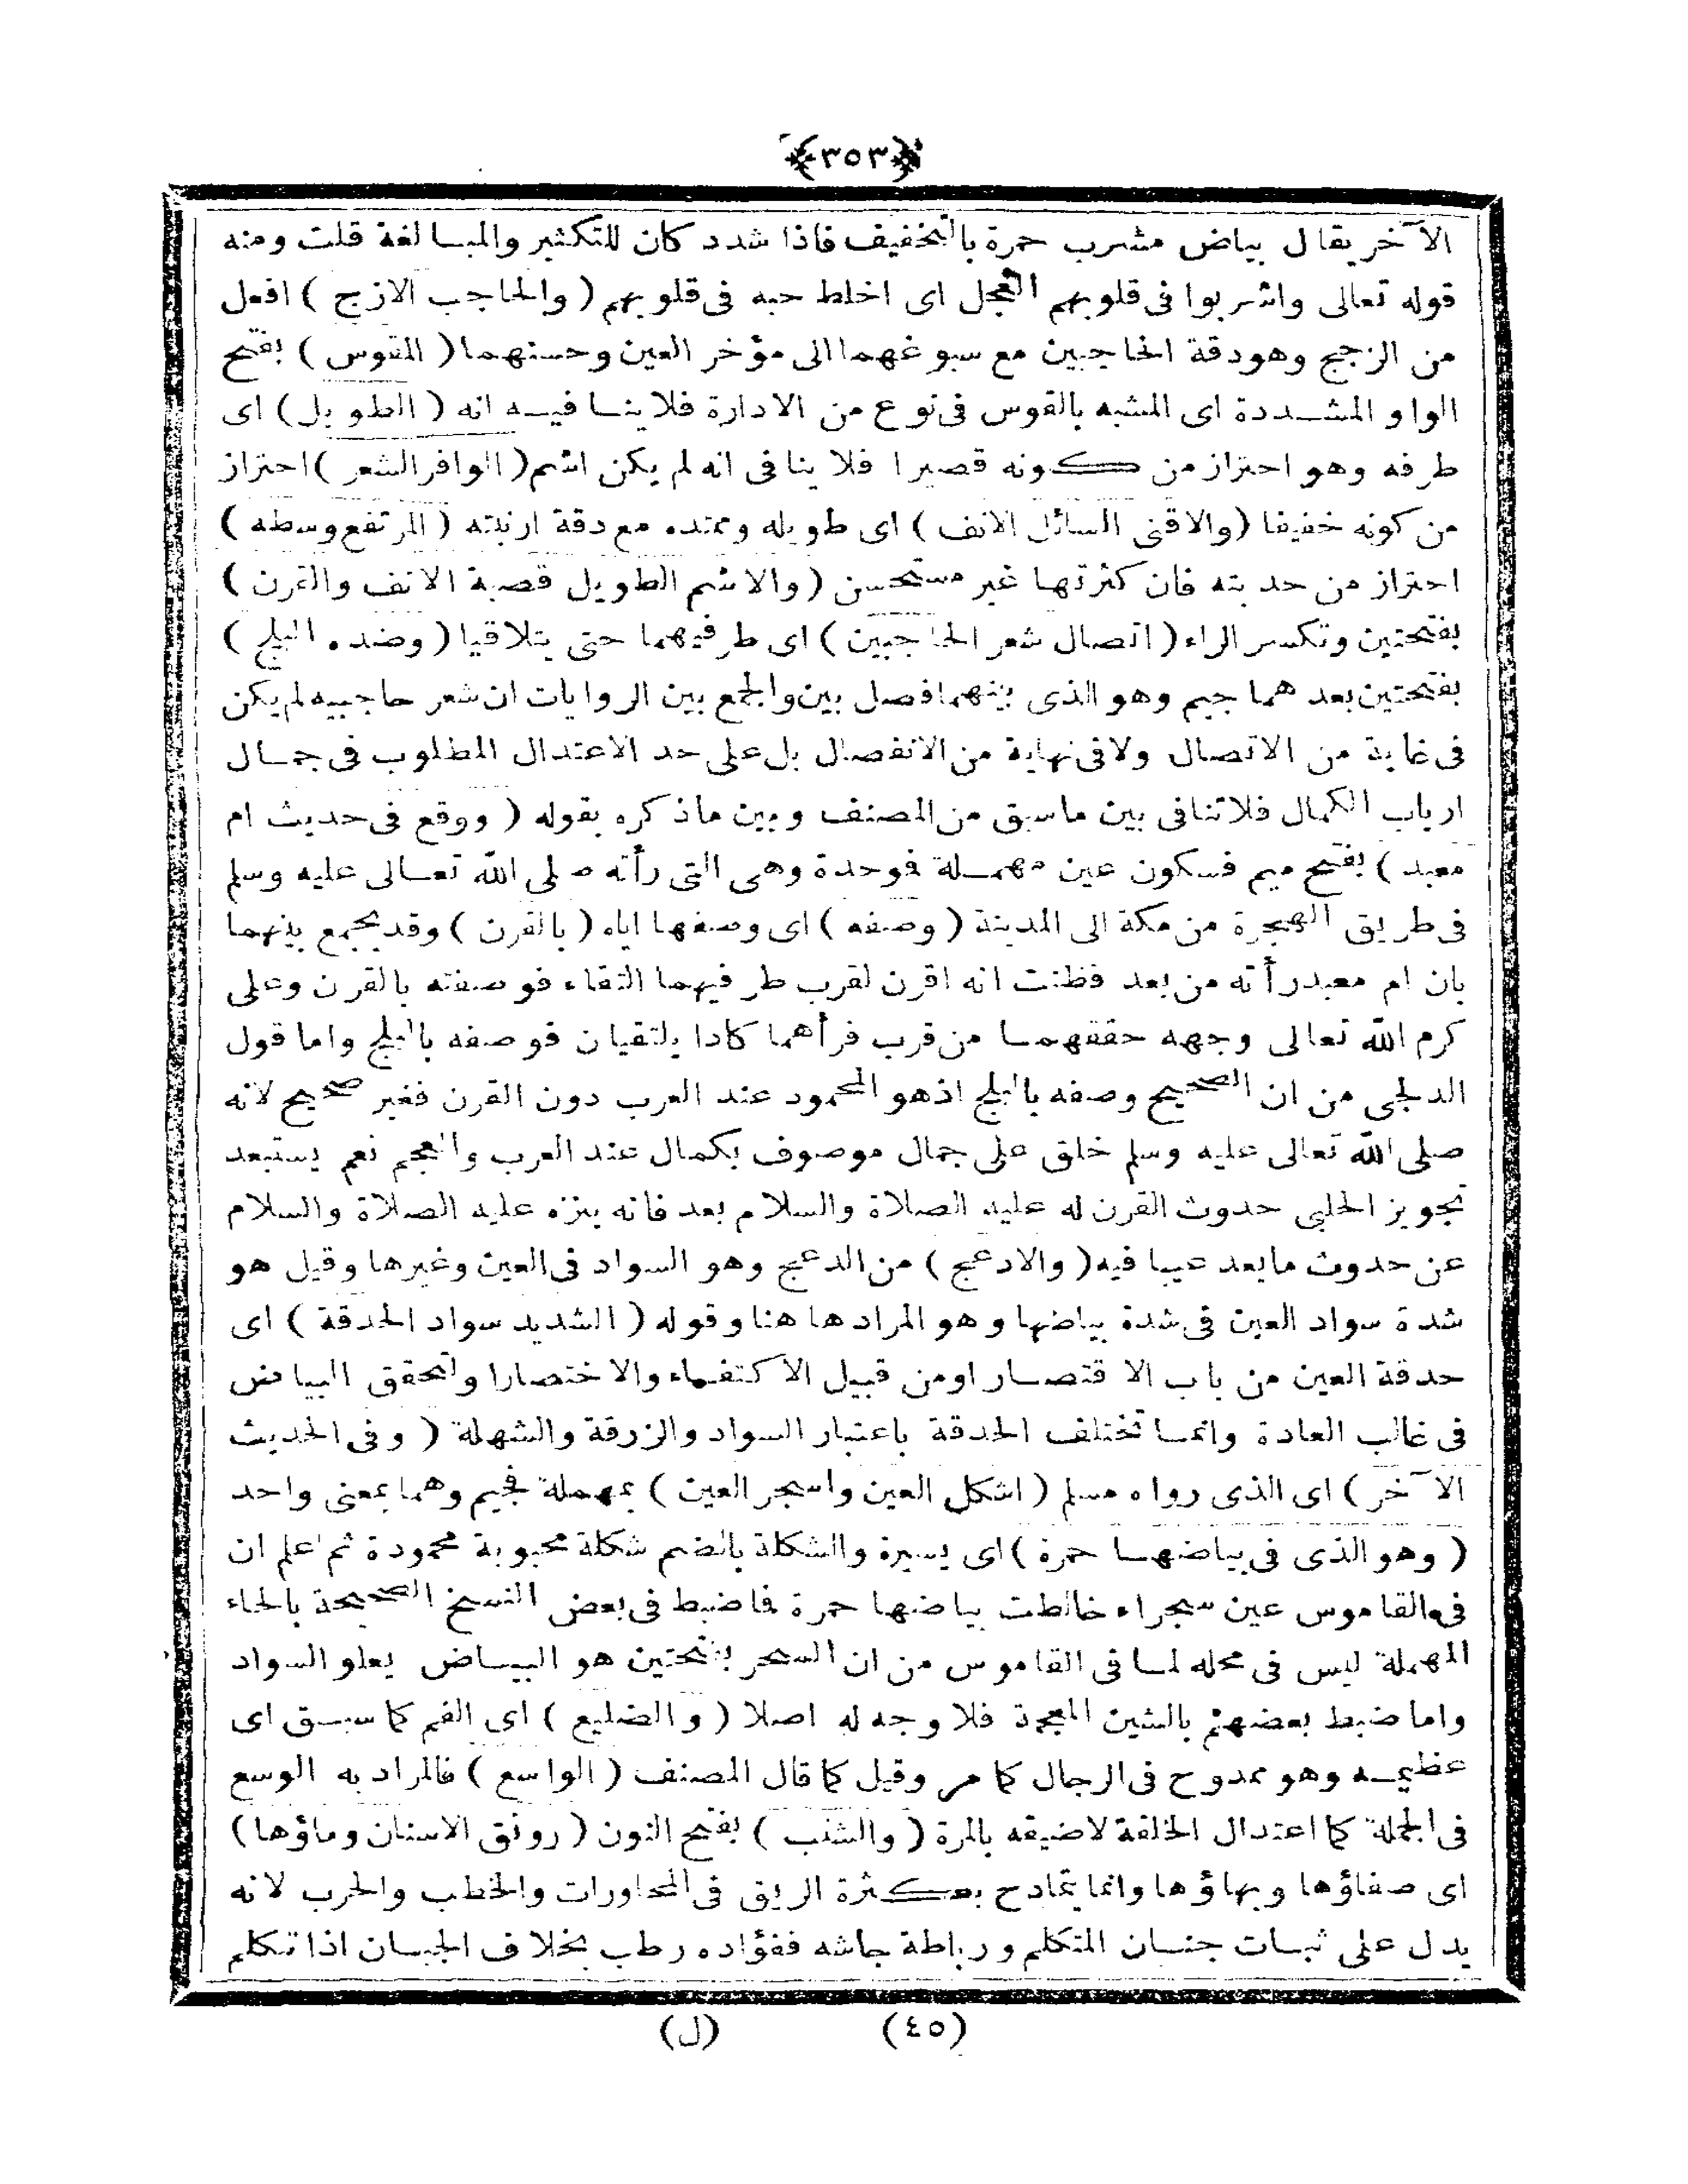 ﴿٣٥٣﴾
الآخر يقال بياض مشرب حمرة بالتخفيف فاذا شدد كان للتكثير والمبالغة قلت ومنه
قوله تعالى واشربوا فى قلوبهم العجل اى اخلط حبه فى قلوبهم ( والحاجب الازج ) افعل
من الزجج وهو دقة الحاجبين مع سبوغهما الى مؤخر العين وحسنهما ( المقوس ) بفتح
الواو المشددة اى المشبه بالقوس فى نوع من الادارة فلا ينافيه انه ( الطويل ) اى
طرفه وهو احتراز من كونه قصيرا فلا ينافى انه لم يكن اشم ( الوافر الشعر ) احتراز
من كونه خفيفا ( والاقنى السائل الانف ) اى طويله وممتده مع دقة ارنبته ( المرتفع وسطه )
احتراز من حدبته فان كثرتها غير مستحسن ( والاشم الطويل قصبة الانف والقرن )
بفتحتين وتكسر الراء ( اتصال شعر الحاجبين ) اى طرفيهما حتى يتلاقيا ( وضده البلج )
بفتحتين بعدهما جيم وهو الذى بينهما فصل بين والجمع بين الروايات ان شعر حاجبيه لم يكن
فى غاية من الاتصال ولا فى نهاية من الانفصال بل على حد الاعتدال المطلوب فى جمال
ارباب الكمال فلا تنافى بين ما سبق من المصنف وبين ما ذكره بقوله ( ووقع فى حديث ام
معبد ) بفتح ميم فسكون عين مهملة فوحدة وهى التى رأته صلى الله تعالى عليه وسلم
فى طريق الهجرة من مكة الى المدينة ( وصفه ) اى وصفها اياه ( بالقرن ) وقد يجمع بينهما
بان ام معبد رأته من بعد فظنت انه اقرن لقرب طرفيهما التقاء فوصفته بالقرن وعلى
كرم الله تعالى وجهه حققهما من قرب فرأهما كادا يلتقيان فوصفه بالبلج واما قول
الدلجى من ان الصحيح وصفه بالبلج اذ هو المحمود عند العرب دون القرن فغير صحيح لانه
صلى الله تعالى عليه وسلم خلق على جمال موصوف بكمال عند العرب والعجم نعم يستبعد
تجويز الحلبى حدوث القرن له عليه الصلاة والسلام بعد فانه ينزه عليه الصلاة والسلام
عن حدوث ما يعد عيبا فيه ( والادعج ) من الدعج وهو السواد فى العين وغيرها وقيل هو
شدة سواد العين فى شدة بياضها وهو المراد ها هنا وقوله ( الشديد سواد الحدقة ) اى
حدقة العين من باب الاقتصار او من قبيل الاكتفاء والاختصارا ولتحقق البياض
فى غالب العادة وانما تختلف الحدقة باعتبار السواد والزرقة والشهلة ( وفى الحديث
الآخر ) اى الذى رواه مسلم ( اشكل العين واسجر العين ) بمهملة فجيم وهما بمعنى واحد
( وهو الذى فى بياضها حمرة ) اى يسيرة والشكلة بالضم شكلة محبوبة محمودة ثم اعلم ان
فى القاموس عين سجراء خالطت بياضها حمرة فا ضبط فى بعض النسخ الصحيحة بالحاء
المهملة ليس فى محله لما فى القاموس من ان السحر بفتحتين هو البياض يعلو السواد
واما ضبط بعضهم بالشين المعجمة فلا وجه له اصلا ( والضليع ) اى الفم كما سبق اى
عظيمه وهو ممدوح فى الرجال كما مر وقيل كما قال المصنف ( الواسع ) فالمراد به الوسع
فى الجملة كما اعتدال الخلقة لا ضيقه بالمرة ( والشنب ) بفتح النون ( رونق الاسنان وماؤها )
اى صفاؤها وبهاؤها وانما يتمادح بكثرة الريق فى المحاورات والخطب والحرب لانه
يدل على ثبات جنان المتكلم ورباطة جاشه ففؤاده رطب بخلاف الجبان اذا تكلم
(٤٥) (ل)